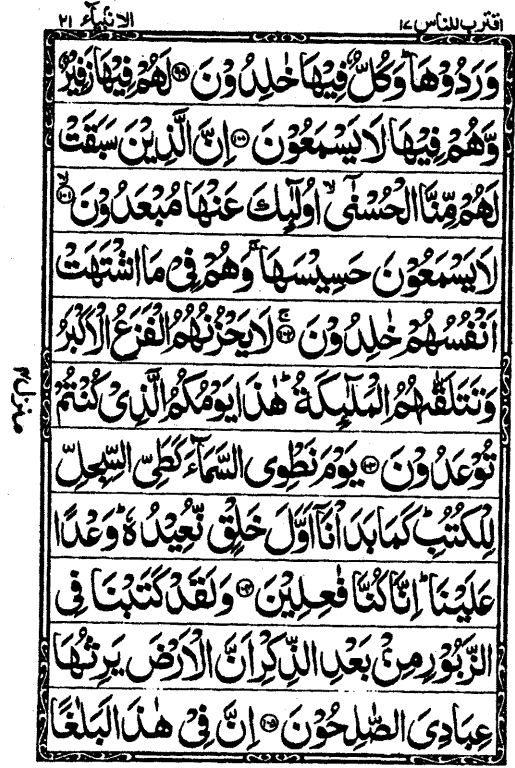 اقترب للناس ١٧
الانبیآء ٢١
وَرَدُوْهَا ؕ وَكُلٌّ فِیْهَا خٰلِدُوْنَ ﴿٩٩﴾ لَهُمْ فِیْهَا زَفِیْرٌ
وَّهُمْ فِیْهَا لَا یَسْمَعُوْنَ ﴿١٠٠﴾ اِنَّ الَّذِیْنَ سَبَقَتْ
لَهُمْ مِّنَّا الْحُسْنٰۤی ۙ اُولٰٓىِٕكَ عَنْهَا مُبْعَدُوْنَ ﴿١٠١﴾ ۙ
لَا یَسْمَعُوْنَ حَسِیْسَهَا ۚ وَهُمْ فِیْ مَا اشْتَهَتْ
اَنْفُسُهُمْ خٰلِدُوْنَ ﴿١٠٢﴾ ۚ لَا یَحْزُنُهُمُ الْفَزَعُ الْاَكْبَرُ
وَتَتَلَقّٰىهُمُ الْمَلٰٓىِٕكَةُ ؕ هٰذَا یَوْمُكُمُ الَّذِیْ كُنْتُمْ
تُوْعَدُوْنَ ﴿١٠٣﴾ یَوْمَ نَطْوِی السَّمَآءَ كَطَیِّ السِّجِلِّ
لِلْكُتُبِ ؕ كَمَا بَدَاْنَاۤ اَوَّلَ خَلْقٍ نُّعِیْدُهٗ ؕ وَعْدًا
عَلَیْنَا ؕ اِنَّا كُنَّا فٰعِلِیْنَ ﴿١٠٤﴾ وَلَقَدْ كَتَبْنَا فِی
الزَّبُوْرِ مِنْۢ بَعْدِ الذِّكْرِ اَنَّ الْاَرْضَ یَرِثُهَا
عِبَادِیَ الصّٰلِحُوْنَ ﴿١٠٥﴾ اِنَّ فِیْ هٰذَا لَبَلٰغًا
منزل ٤